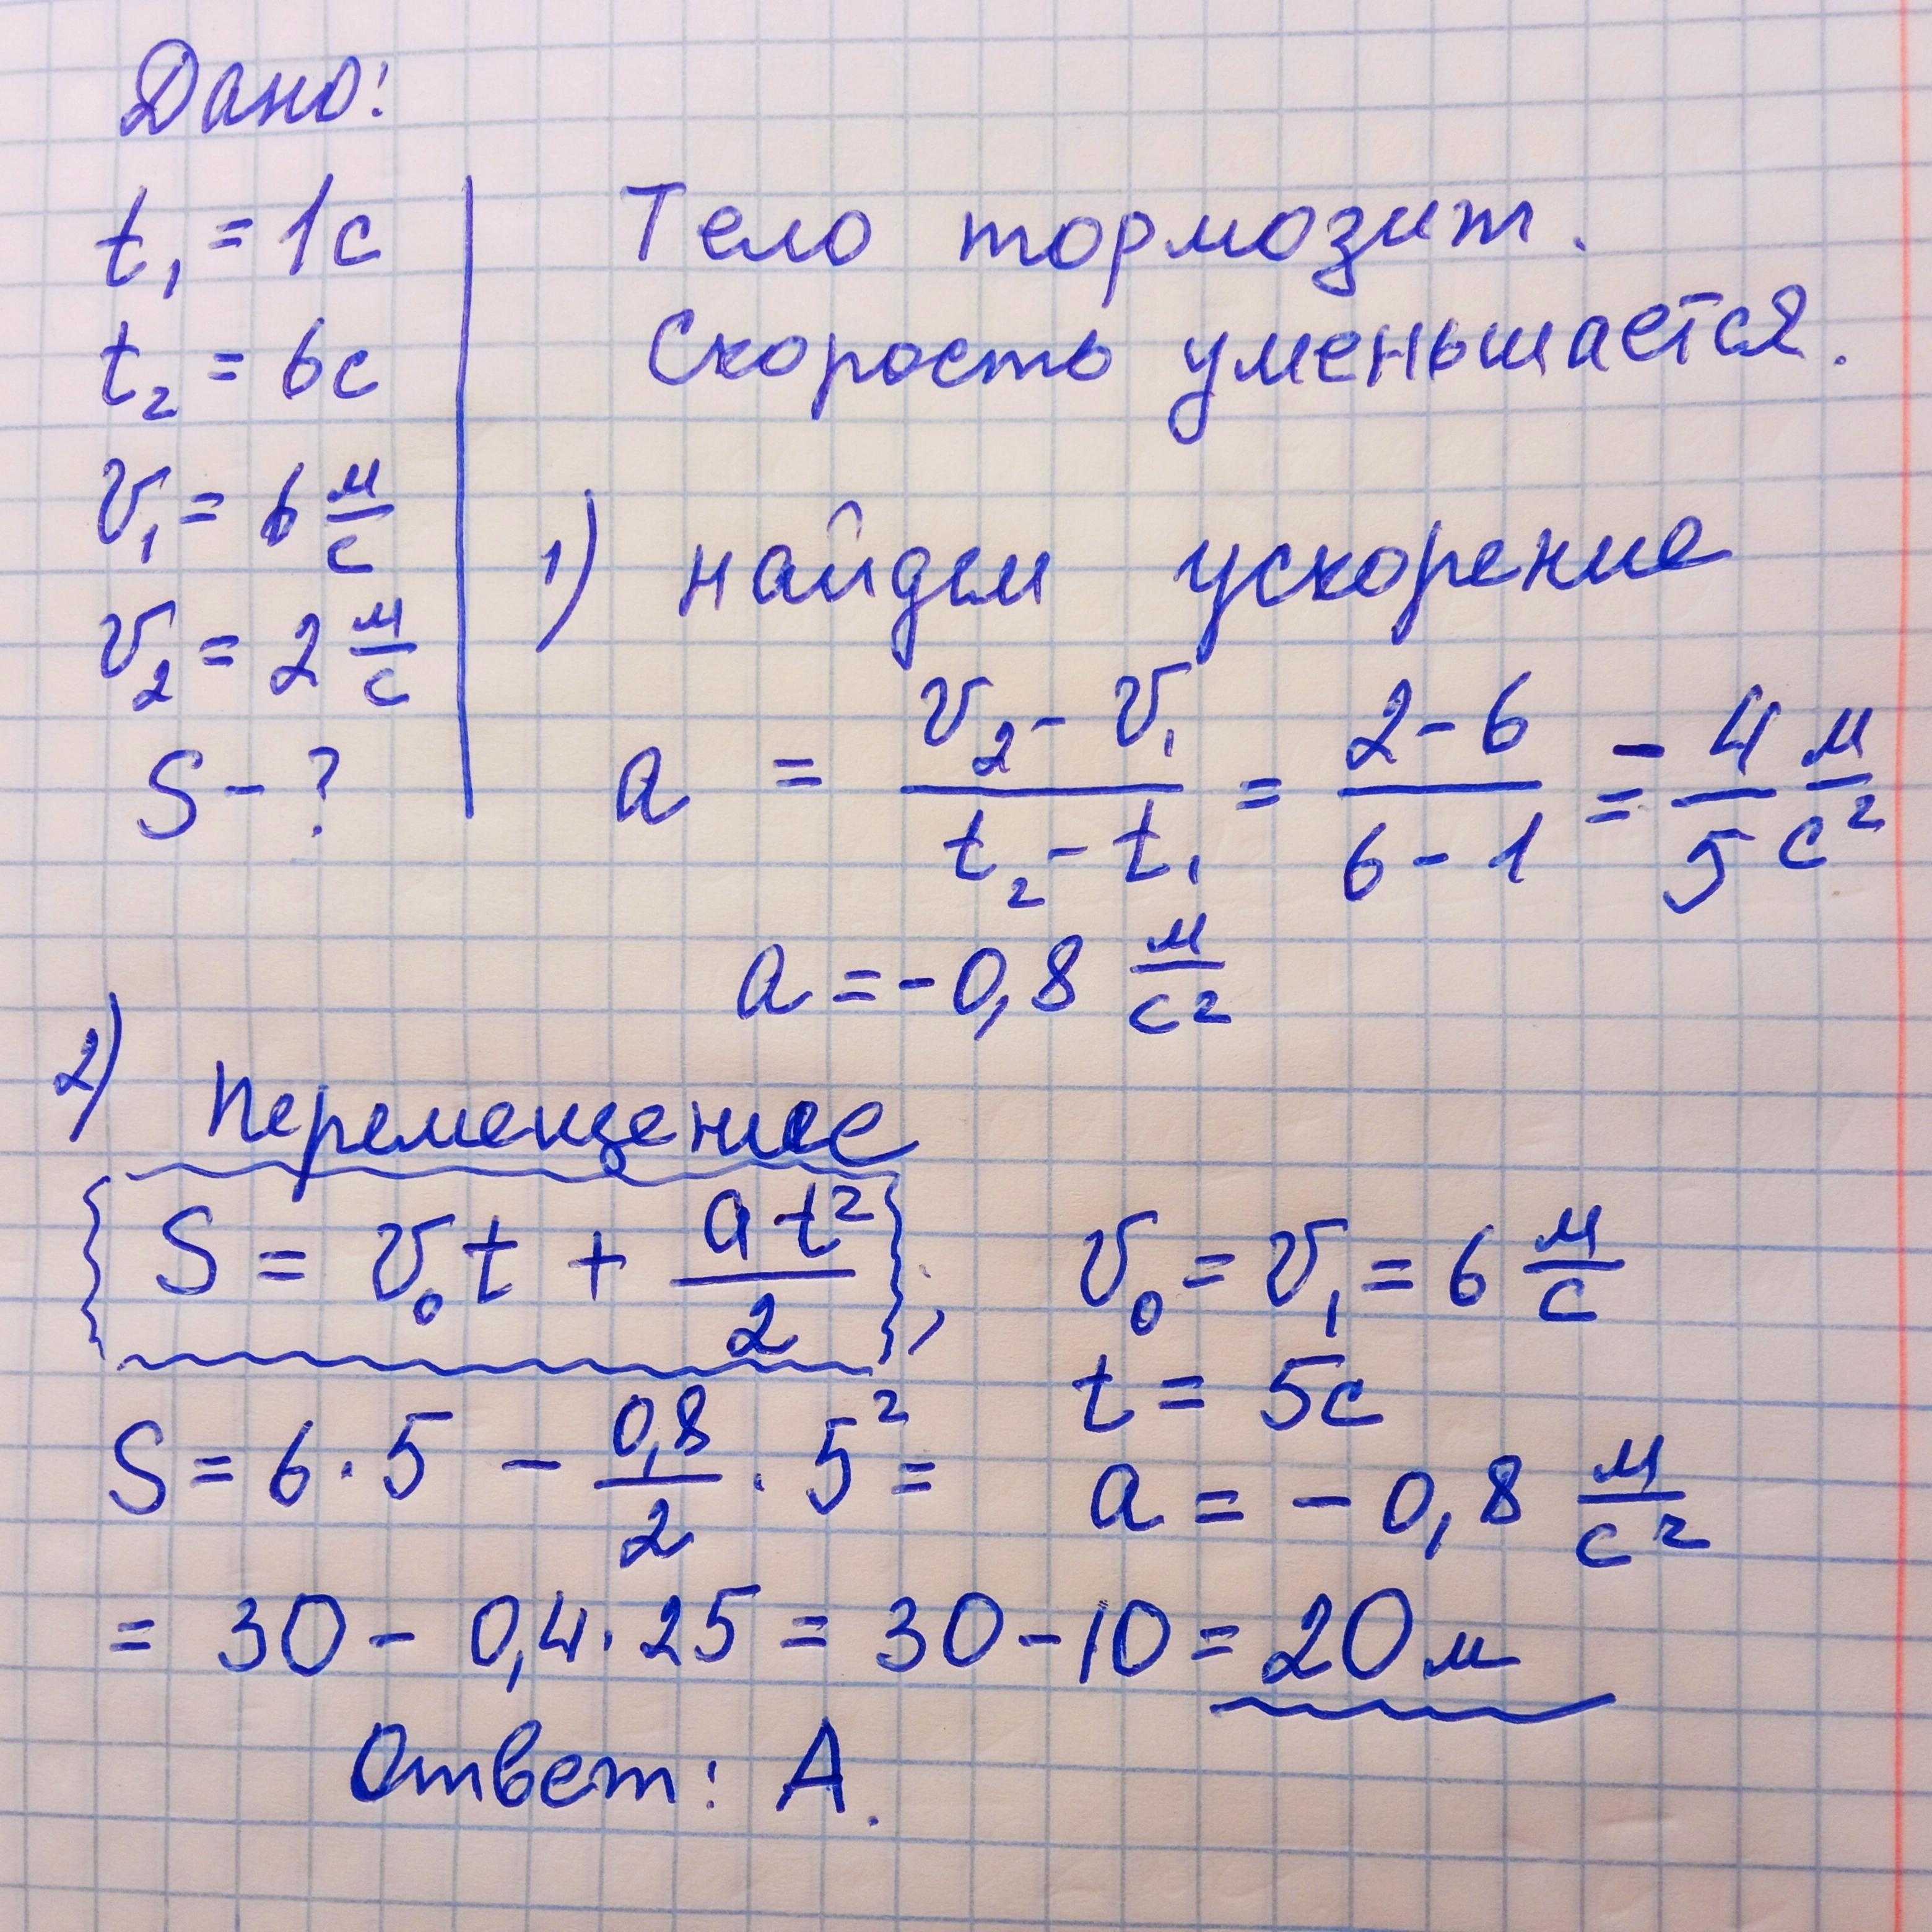 Дано:
t₁ = 1с
t₂ = 6с
v₁ = 6 м/с
v₂ = 2 м/с
S - ?
Тело тормозит.
Скорость уменьшается.
1) найдем ускорение
a = (v₂ - v₁)/(t₂ - t₁) = (2 - 6)/(6 - 1) = -4/5 м/с²
a = -0,8 м/с²
2) Перемещение
S = v₀t + at²/2;
v₀ = v₁ = 6 м/с
t = 5с
a = -0,8 м/с²
S = 6·5 - 0,8/2 · 5² =
= 30 - 0,4·25 = 30 - 10 = 20м
Ответ: А.